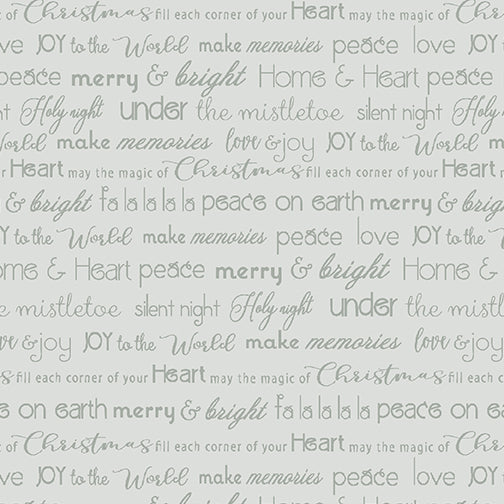 Christmas fill each corner of your Heart may the magic of Chris
ve JOY to the World make memories peace love JOY to the
peace merry & bright Home & Heart peace
nt Holy night under the mistletoe silent night Holy
World make memories love & joy JOY to the World m
r Heart may the magic of Christmas fill each corner of your Heart m
& bright fa la la la la peace on earth merry & brig
Y to the World make memories peace love JOY to the
ome & Heart peace merry & bright Home &
e mistletoe silent night Holy night under the mist
ve & joy JOY to the World make memories love & joy
s fill each corner of your Heart may the magic of Christmas fill each c
e on earth merry & bright fa la la la la peace on ea
of Christmas fill each corner of your Heart may the magic of Chris
ve JOY to the World make memories peace love JOY to the
peace merry & bright Home & Heart peace